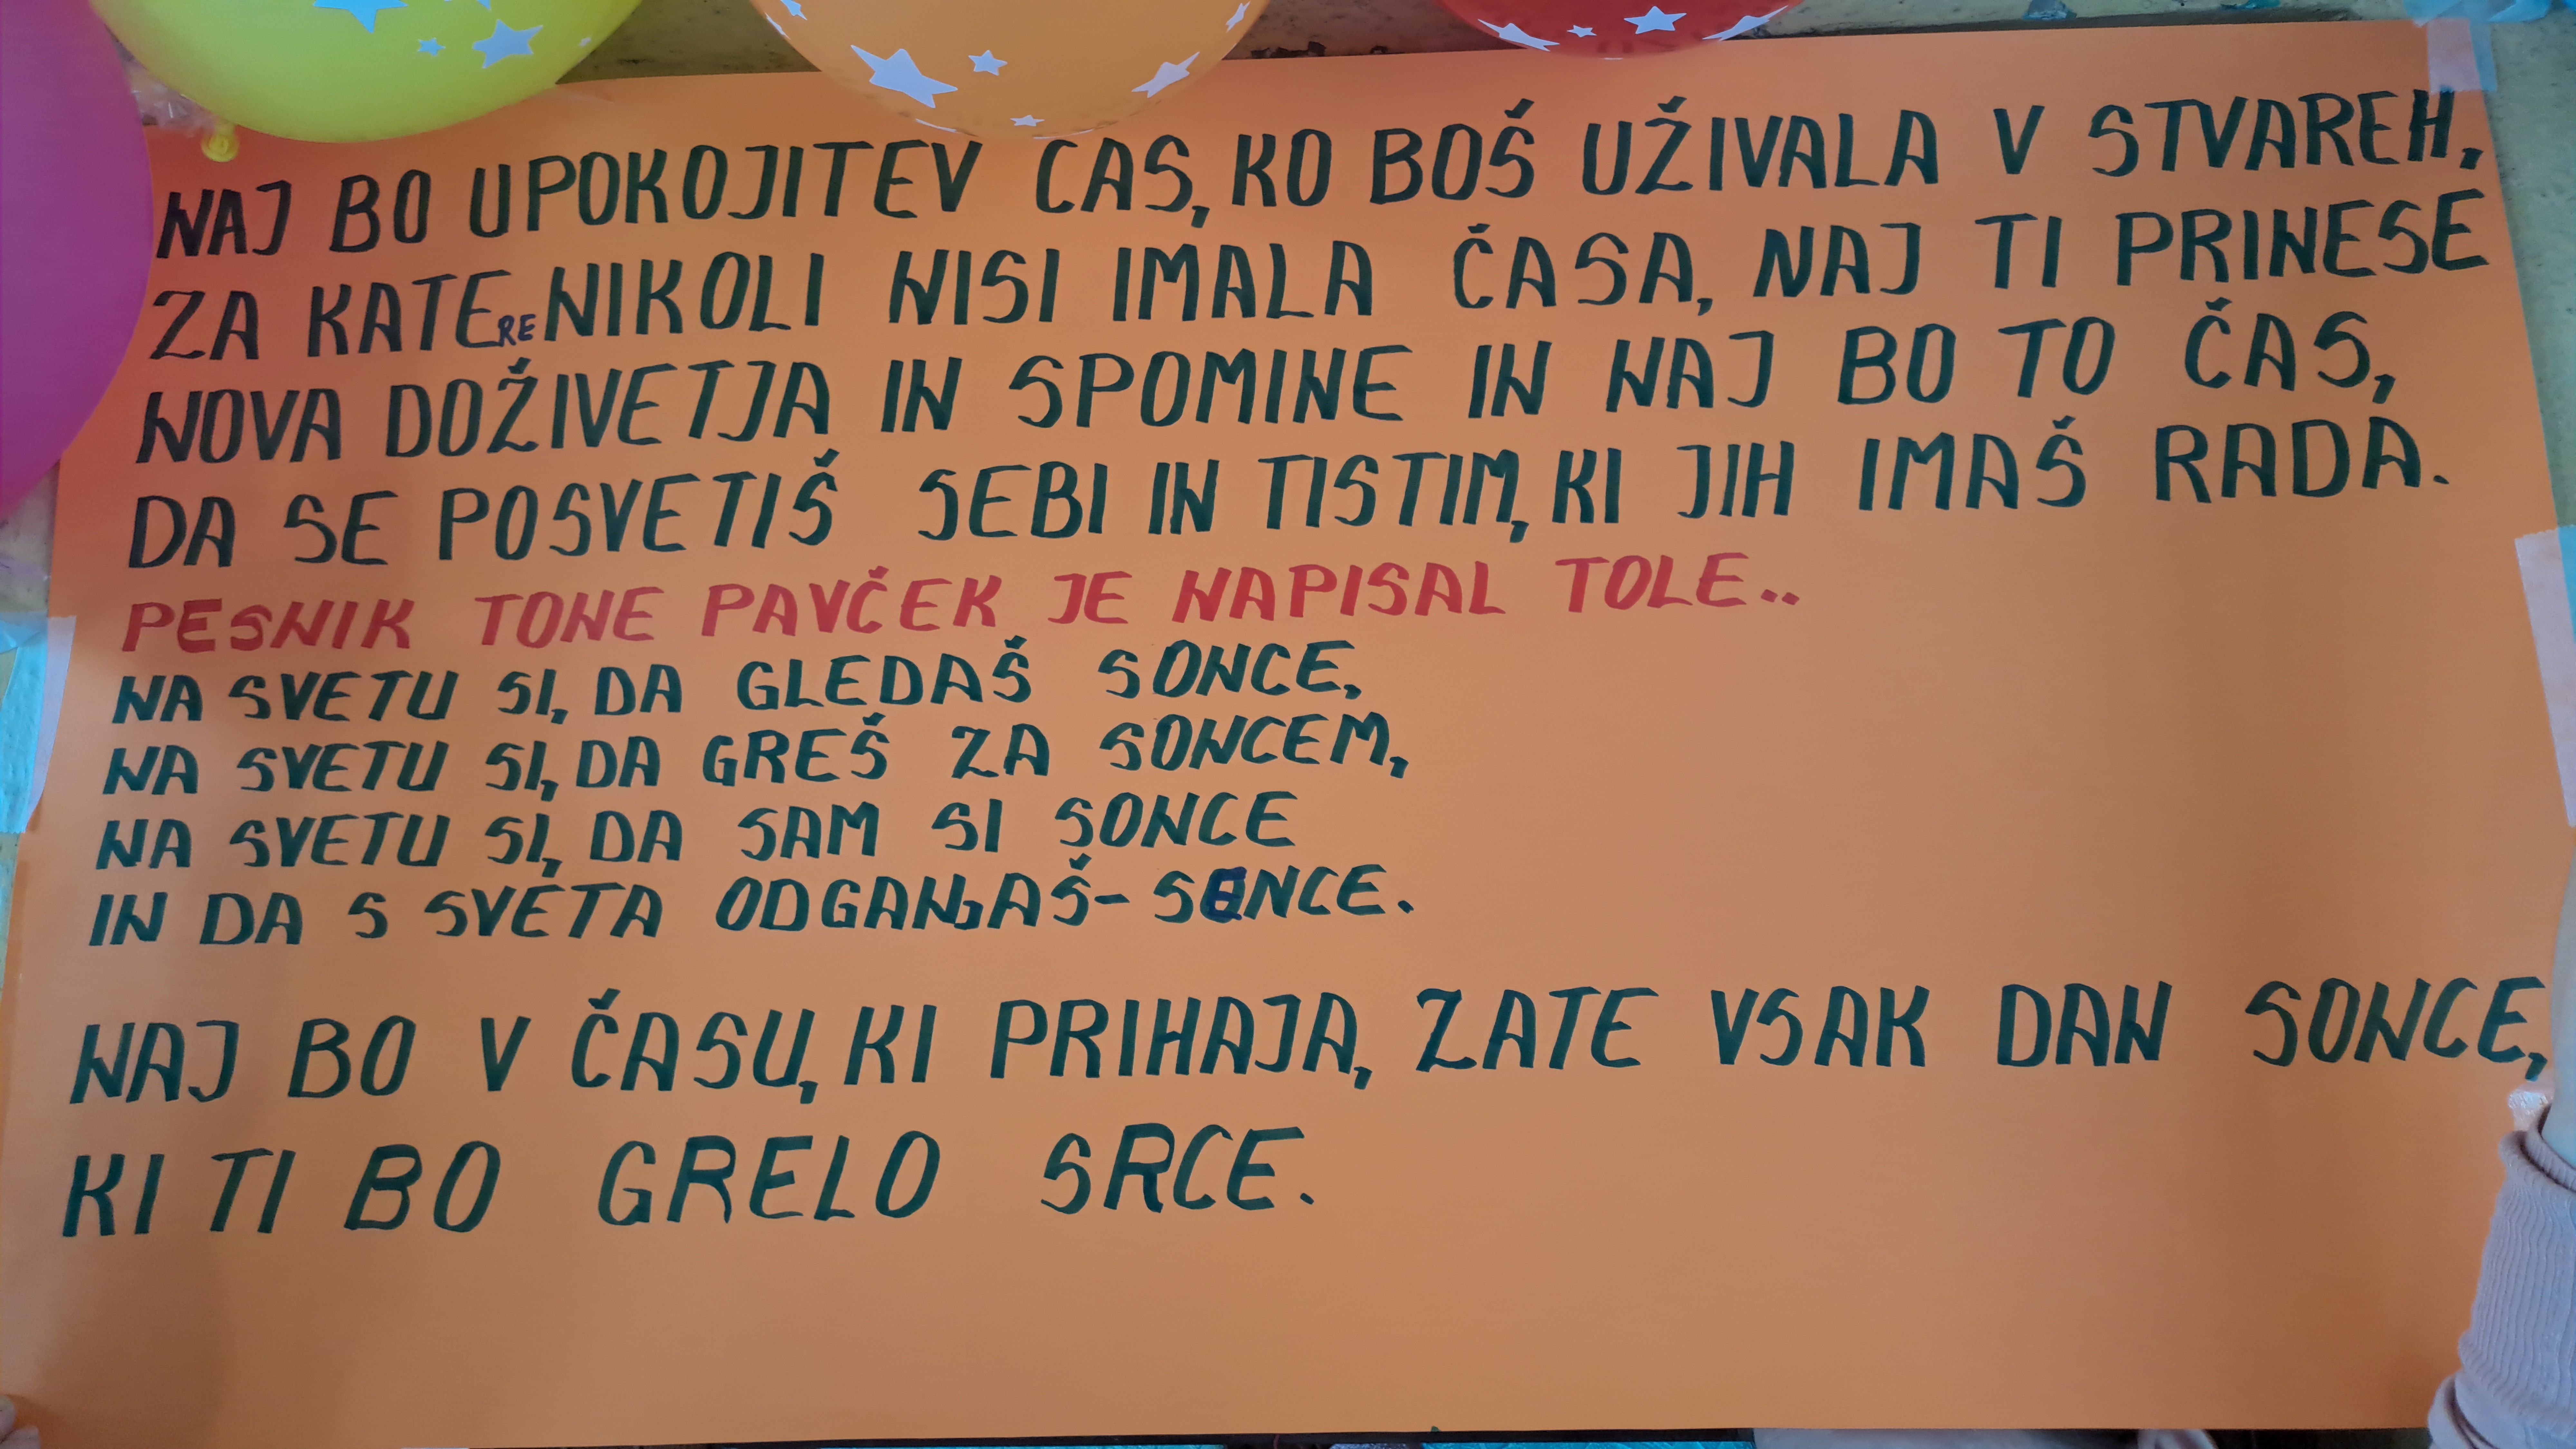 NAJ BO UPOKOJITEV CAS, KO BOŠ UŽIVALA V STVAREH,
ZA KATERE NIKOLI NISI IMALA ČASA, NAJ TI PRINESE
NOVA DOŽIVETJA IN SPOMINE IN NAJ BO TO ČAS,
DA SE POSVETIŠ SEBI IN TISTIM, KI JIH IMAŠ RADA.
PESNIK TONE PAVČEK JE NAPISAL TOLE..
NA SVETU SI, DA GLEDAŠ SONCE,
NA SVETU SI, DA GREŠ ZA SONCEM,
NA SVETU SI, DA SAM SI SONCE
IN DA S SVETA ODGANJAŠ- SENCE.
NAJ BO V ČASU, KI PRIHAJA, ZATE VSAK DAN SONCE,
KI TI BO GRELO SRCE.